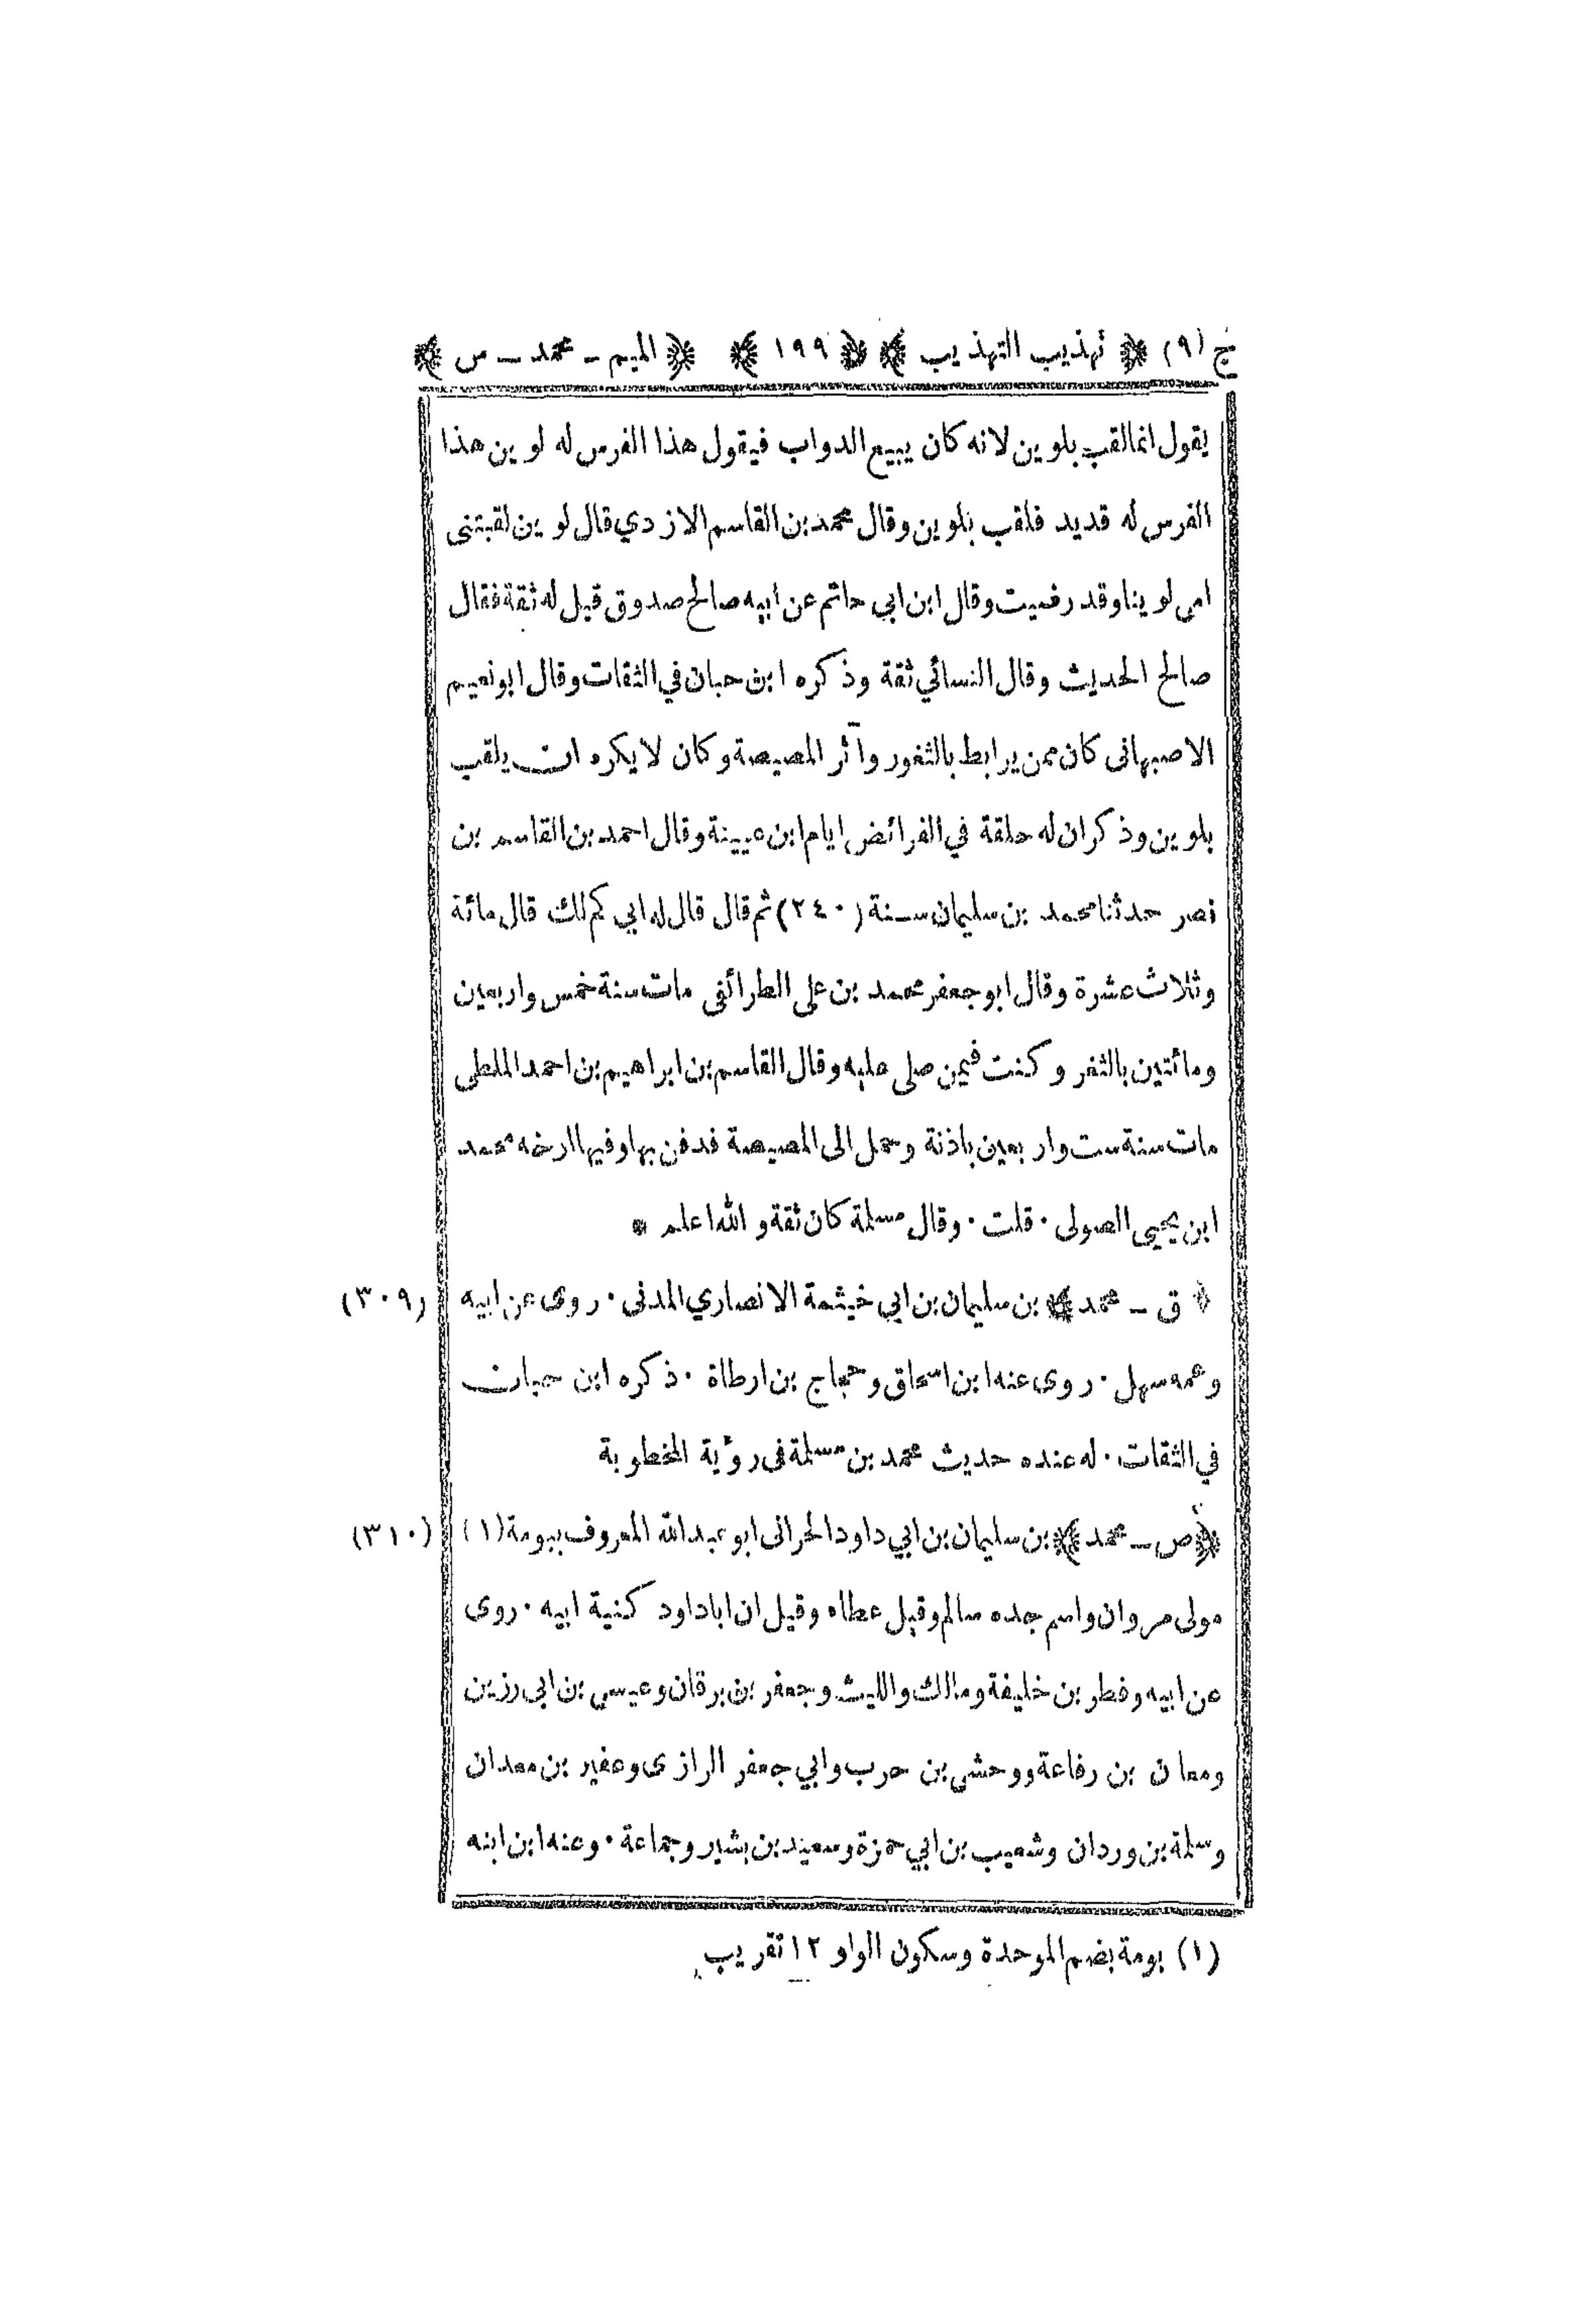 ج (٩) ﴿ تهذيب التهذيب ﴾ ﴿ ١٩٩ ﴾ ﴿ الميم ـ محمد ـ س ﴾
يقول انما لقب بلوين لانه كان يبيع الدواب فيقول هذا الفرس له لوين هذا
الفرس له قديد فلقب بلوين وقال محمد بن القاسم الازدي قال لوين لقبتنى
امى لوينا وقد رضيت وقال ابن ابي حاتم عن ابيه صالح صدوق قيل له ثقة فقال
صالح الحديث وقال النسائي ثقة وذكره ابن حبان في الثقات وقال ابو نعيم
الاصبهانى كان ممن يرابط بالثغور وآثر المصيصة وكان لا يكره ان يلقب
بلوين وذكر ان له حلقة في الفرائض ايام ابن عيينة وقال احمد بن القاسم بن
نصر حدثنا محمد بن سليمان سنة (٢٤٠) ثم قال قال له ابي كم لك قال مائة
وثلاث عشرة وقال ابو جعفر محمد بن على الطرائفى مات سنة خمس واربعين
ومائتين بالثغر وكنت فيمن صلى عليه وقال القاسم بن ابراهيم بن احمد الملطى
مات سنة ست واربعين باذنة وحمل الى المصيصة فدفن بها وفيها ارخه محمد
ابن يحيى الصولى · قلت · وقال مسلمة كان ثقة والله اعلم *
﴿ ق ـ محمد ﴾ بن سليمان بن ابي خيثمة الانصاري المدنى · روى عن ابيه (٣٠٩)
وعمه سهل · روى عنه ابن اسحاق وحجاج بن ارطاة · ذكره ابن حبان
في الثقات · له عنده حديث محمد بن مسلمة فى رؤية المخطوبة
﴿ ص ـ محمد ﴾ بن سليمان بن ابي داود الحرانى ابو عبد الله المعروف ببومة (١) (٣١٠)
مولى مروان واسم جده سالم وقيل عطاء وقيل ان ابا داود كنية ابيه · روى
عن ابيه وفطر بن خليفة ومالك والليث وجعفر بن برقان وعيسى بن ابى رزين
ومعان بن رفاعة ووحشى بن حرب وابي جعفر الرازى وعفير بن معدان
وسلمة بن وردان وشعيب بن ابي حمزة وسعيد بن بشير وجماعة · وعنه ابن ابنه
(١) بومة بضم الموحدة وسكون الواو ١٢ تقريب